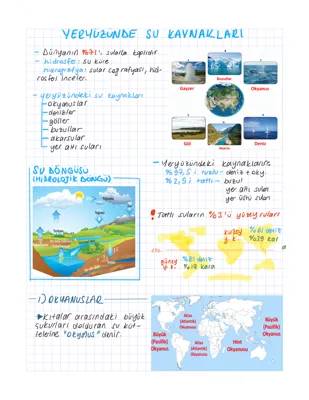 YERYÜZÜNDE SU KAYNAKLARI
- Dünyanın %71'i sularla kaplıdır.
- hidrosfer: su küre
- hidrografya: sular coğrafyası, hid-
rosferi inceler.
- yeryüzündeki su kaynakları
- okyanuslar
- denizler
- göller
- buzullar
- akarsular
- yer altı suları
Gayzer
Buzullar
Okyanus
Göl
Akarsu
Deniz
SU DÖNGÜSÜ
(HİDROLOJİK DÖNGÜ)
- Yeryüzündeki kaynakların:
%97,5'i tuzlu - deniz + oky.
%2,5'i tatlı - buzul
yer altı suları
yer üstü suları
! Tatlı suların %3'ü yüzey suları
kuzey
y.k.
%61 deniz
%39 kara
güney
y.k.
%81 deniz
%19 kara
1) OKYANUSLAR
Kıtalar arasındaki büyük
çukurları dolduran su küt-
lelerine "okyanus" denir.
Büyük
(Pasifik)
Okyanus
Atlas
(Atlantik)
Okyanusu
Atlas
(Atlantik)
Okyanusu
Hint
Okyanusu
Büyük
(Pasifik)
Okyanus